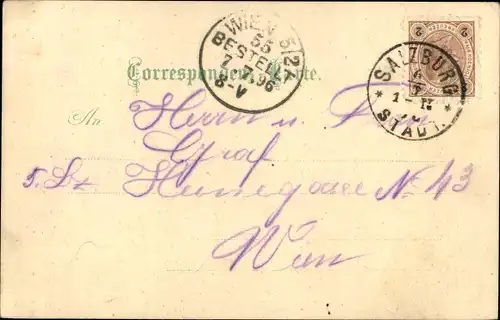 WIEN 5/2A
55
BESTELLT
7.7.96
8-V
SALZBURG
STADT
2 2
Correspondenz-Karte.
An Herrn u. Frau
Graf
5. Bz Hunsgasse N. 43
Wien